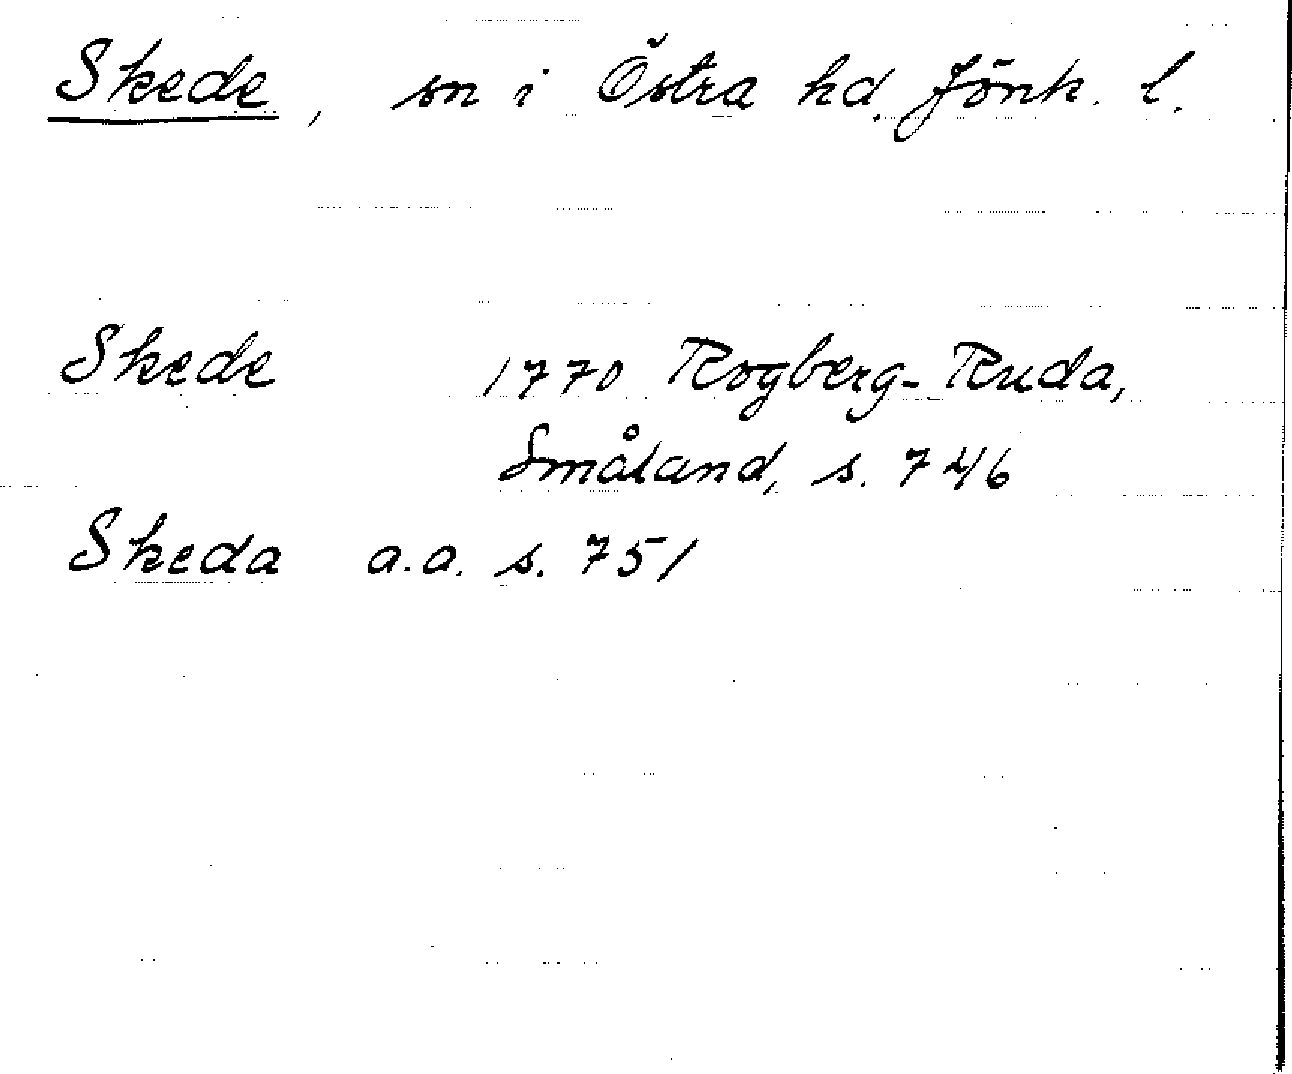 Skede, sn i Östra hd. Jönk. l.
Skede 1770 Rogberg-Ruda,
Småland, s. 746
Skeda a.a. s. 751